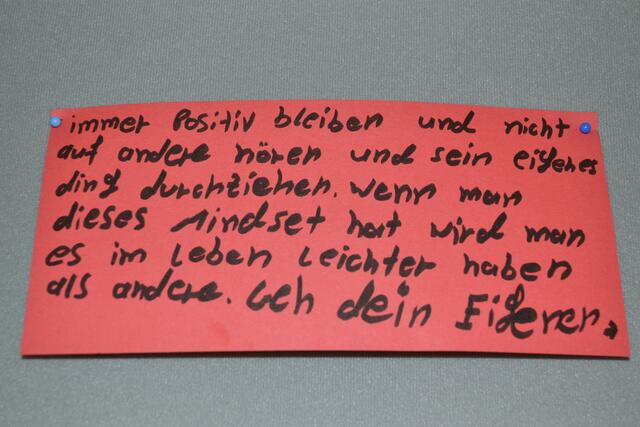 immer Positiv bleiben und nicht
auf andere hören und sein eigenes
ding durchziehen. wenn man
dieses Mindset hat wird man
es im Leben Leichter haben
als andere. Geh dein Eigener